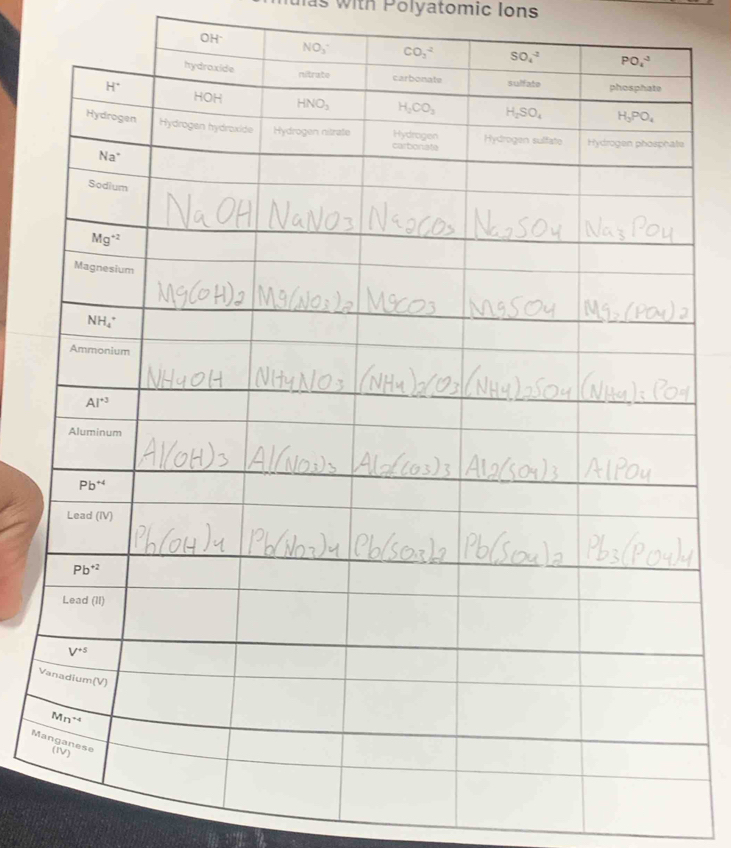 with Polyatomic Ions
OH⁻ NO₃⁻ CO₃⁻² SO₄⁻² PO₄⁻³
hydroxide nitrate carbonate sulfate phosphate
H⁺ HOH HNO₃ H₂CO₃ H₂SO₄ H₃PO₄
Hydrogen Hydrogen hydroxide Hydrogen nitrate Hydrogen carbonate Hydrogen sulfate Hydrogen phosphate
Na⁺
Sodium NaOH NaNO3 Na2CO3 Na2SO4 Na3PO4
Mg⁺²
Magnesium Mg(OH)2 Mg(NO3)2 MgCO3 MgSO4 Mg3(PO4)2
NH₄⁺
Ammonium NH4OH NH4NO3 (NH4)2CO3 (NH4)2SO4 (NH4)3PO4
Al⁺³
Aluminum Al(OH)3 Al(NO3)3 Al2(CO3)3 Al2(SO4)3 AlPO4
Pb⁺⁴
Lead (IV) Pb(OH)4 Pb(NO3)4 Pb(SO3)2 Pb(SO4)2 Pb3(PO4)4
Pb⁺²
Lead (II)
V⁺⁵
Vanadium(V)
Mn⁺⁴
Manganese
(IV)